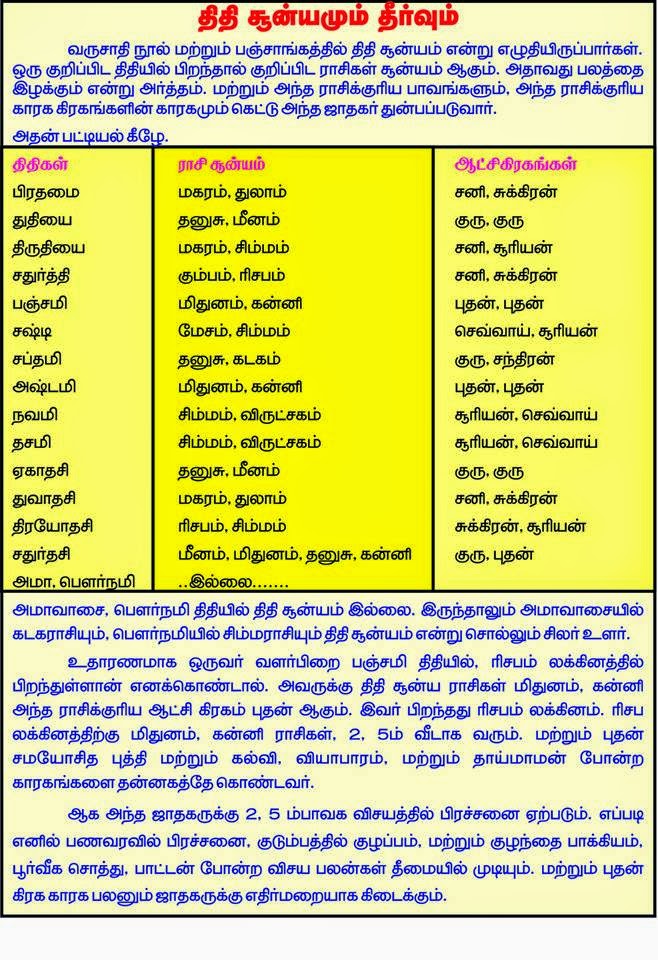 திதி சூன்யமும் தீர்வும்
வருசாதி நூல் மற்றும் பஞ்சாங்கத்தில் திதி சூன்யம் என்று எழுதியிருப்பார்கள்.
ஒரு குறிப்பிட திதியில் பிறந்தால் குறிப்பிட ராசிகள் சூன்யம் ஆகும். அதாவது பலத்தை
இழக்கும் என்று அர்த்தம். மற்றும் அந்த ராசிக்குரிய பாவங்களும், அந்த ராசிக்குரிய
காரக கிரகங்களின் காரகமும் கெட்டு அந்த ஜாதகர் துன்பப்படுவார்.
அதன் பட்டியல் கீழே.
திதிகள் ராசி சூன்யம் ஆட்சிகிரகங்கள்
பிரதமை மகரம், துலாம் சனி, சுக்கிரன்
துதியை தனுசு, மீனம் குரு, குரு
திருதியை மகரம், சிம்மம் சனி, சூரியன்
சதுர்த்தி கும்பம், ரிசபம் சனி, சுக்கிரன்
பஞ்சமி மிதுனம், கன்னி புதன், புதன்
சஷ்டி மேசம், சிம்மம் செவ்வாய், சூரியன்
சப்தமி தனுசு, கடகம் குரு, சந்திரன்
அஷ்டமி மிதுனம், கன்னி புதன், புதன்
நவமி சிம்மம், விருட்சகம் சூரியன், செவ்வாய்
தசமி சிம்மம், விருட்சகம் சூரியன், செவ்வாய்
ஏகாதசி தனுசு, மீனம் குரு, குரு
துவாதசி மகரம், துலாம் சனி, சுக்கிரன்
திரயோதசி ரிசபம், சிம்மம் சுக்கிரன், சூரியன்
சதுர்தசி மீனம், மிதுனம், தனுசு, கன்னி குரு, புதன்
அமா, பௌர்நமி ..இல்லை.......
அமாவாசை, பௌர்நமி திதியில் திதி சூன்யம் இல்லை. இருந்தாலும் அமாவாசையில்
கடகராசியும், பௌர்நமியில் சிம்மராசியும் திதி சூன்யம் என்று சொல்லும் சிலர் உளர்.
உதாரணமாக ஒருவர் வளர்பிறை பஞ்சமி திதியில், ரிசபம் லக்கினத்தில்
பிறந்துள்ளான் எனக்கொண்டால். அவருக்கு திதி சூன்ய ராசிகள் மிதுனம், கன்னி
அந்த ராசிக்குரிய ஆட்சி கிரகம் புதன் ஆகும். இவர் பிறந்தது ரிசபம் லக்கினம். ரிசப
லக்கினத்திற்கு மிதுனம், கன்னி ராசிகள், 2, 5ம் வீடாக வரும். மற்றும் புதன்
சமயோசித புத்தி மற்றும் கல்வி, வியாபாரம், மற்றும் தாய்மாமன் போன்ற
காரகங்களை தன்னகத்தே கொண்டவர்.
ஆக அந்த ஜாதகருக்கு 2, 5 ம்பாவக விசயத்தில் பிரச்சனை ஏற்படும். எப்படி
எனில் பணவரவில் பிரச்சனை, குடும்பத்தில் குழப்பம், மற்றும் குழந்தை பாக்கியம்,
பூர்வீக சொத்து, பாட்டன் போன்ற விசய பலன்கள் தீமையில் முடியும். மற்றும் புதன்
கிரக காரக பலனும் ஜாதகருக்கு எதிர்மறையாக கிடைக்கும்.